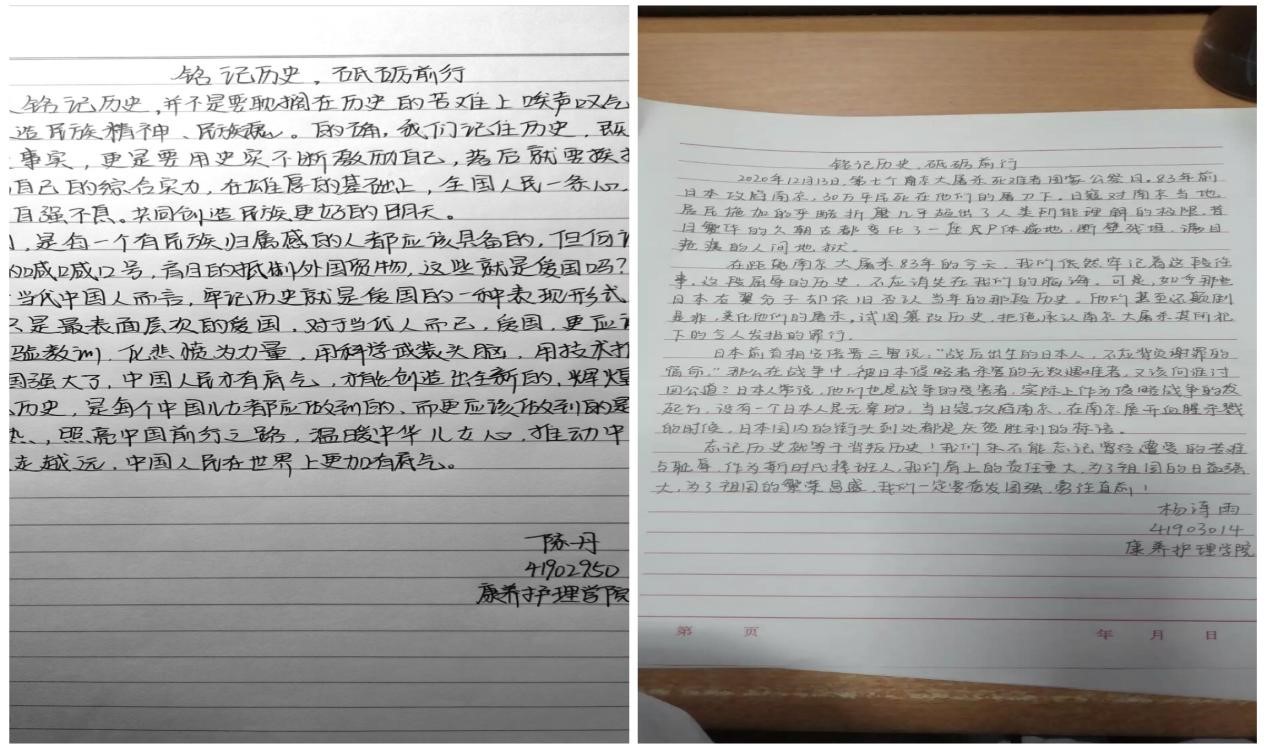 铭记历史,砥砺前行
铭记历史,并不是要耽搁在历史的苦难上唉声叹气
造民族精神、民族魂。的确,我们记住历史,既
事实,更是要用史实不断激励自己,落后就要挨
自己的综合实力,在雄厚的基础上,全国人民一条心
自强不息。共同创造民族更好的明天。
,是每一个有民族归属感的人都应该具备的,但何
的喊喊口号,盲目的抵制外国货物,这些就是爱国吗?
当代中国人而言,牢记历史就是爱国的一种表现形式
只是最表面层次的爱国,对于当代人而已,爱国,更应
验教训,化悲愤为力量,用科学武装头脑,用技术
国强大了,中国人民亦有底气,亦能创造出全新的,辉煌
历史,是每个中国儿女都应做到的,而更应该做到的是
热,照亮中国前行之路,温暖中华儿女心,推动中
走越远,中国人民在世界上更加有底气。
陈丹
41902950
康养护理学院
铭记历史,砥砺前行
2020年12月13日,第七个南京大屠杀死难者国家公祭日。83年前
日本攻陷南京,30万平民死在他们的屠刀下。日寇对南京当地
居民施加的手段折磨几乎超出了人类所能理解的极限。昔
日繁华的六朝古都变化了一座尸体遍地,断壁残垣,满目
疮痍的人间地狱。
在距离南京大屠杀83年的今天,我们依然牢记着这段往
事,这段屈辱的历史,不应消失在我们的脑海。可是,如今那些
日本右翼分子却依旧否认当年的那段历史。他们甚至还颠倒
是非,美化他们的屠杀。试图篡改历史,拒绝承认南京大屠杀其所犯
下的令人发指的罪行。
日本前首相安倍晋三曾说,“战后出生的日本人,不应背负谢罪的
宿命。”那么在战争中,被日本侵略者杀害的无数遇难者,又该向谁讨
回公道?日本人常说,他们也是战争的受害者,实际上作为侵略战争的发
起方,没有一个日本人是无辜的。当日寇攻陷南京,在南京展开血腥杀戮
的时候,日本国内的街头到处都是庆贺胜利的标语。
忘记历史就等于背叛历史!我们永不能忘记曾经遭受的苦难
与耻辱,作为新时代接班人,我们肩上的责任重大,为了祖国的日益强
大,为了祖国的繁荣昌盛,我们一定要奋发图强,勇往直前!
杨诗雨
41903014
康养护理学院
第 页 年 月 日